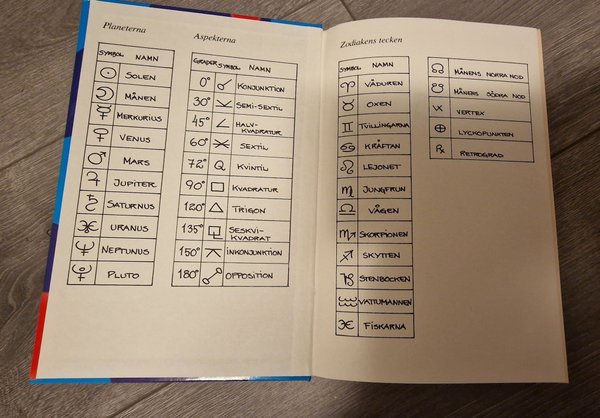 Planeterna
SYMBOL NAMN
SOLEN
MÅNEN
MERKURIUS
VENUS
MARS
JUPITER
SATURNUS
URANUS
NEPTUNUS
PLUTO
Aspekterna
GRADER SYMBOL NAMN
0° KONJUNKTION
30° SEMI-SEXTIL
45° HALV-
KVADRATUR
60° SEXTIL
72° Q KVINTIL
90° KVADRATUR
120° TRIGON
135° SESKVI-
KVADRAT
150° INKONJUNKTION
180° OPPOSITION
Zodiakens tecken
SYMBOL NAMN
VÄDUREN
OXEN
TVILLINGARNA
KRÄFTAN
LEJONET
JUNGFRUN
VÅGEN
SKORPIONEN
SKYTTEN
STENBOCKEN
VATTUMANNEN
FISKARNA
MÅNENS NORRA NOD
MÅNENS SÖDRA NOD
VERTEX
LYCKOPUNKTEN
℞ RETROGRAD